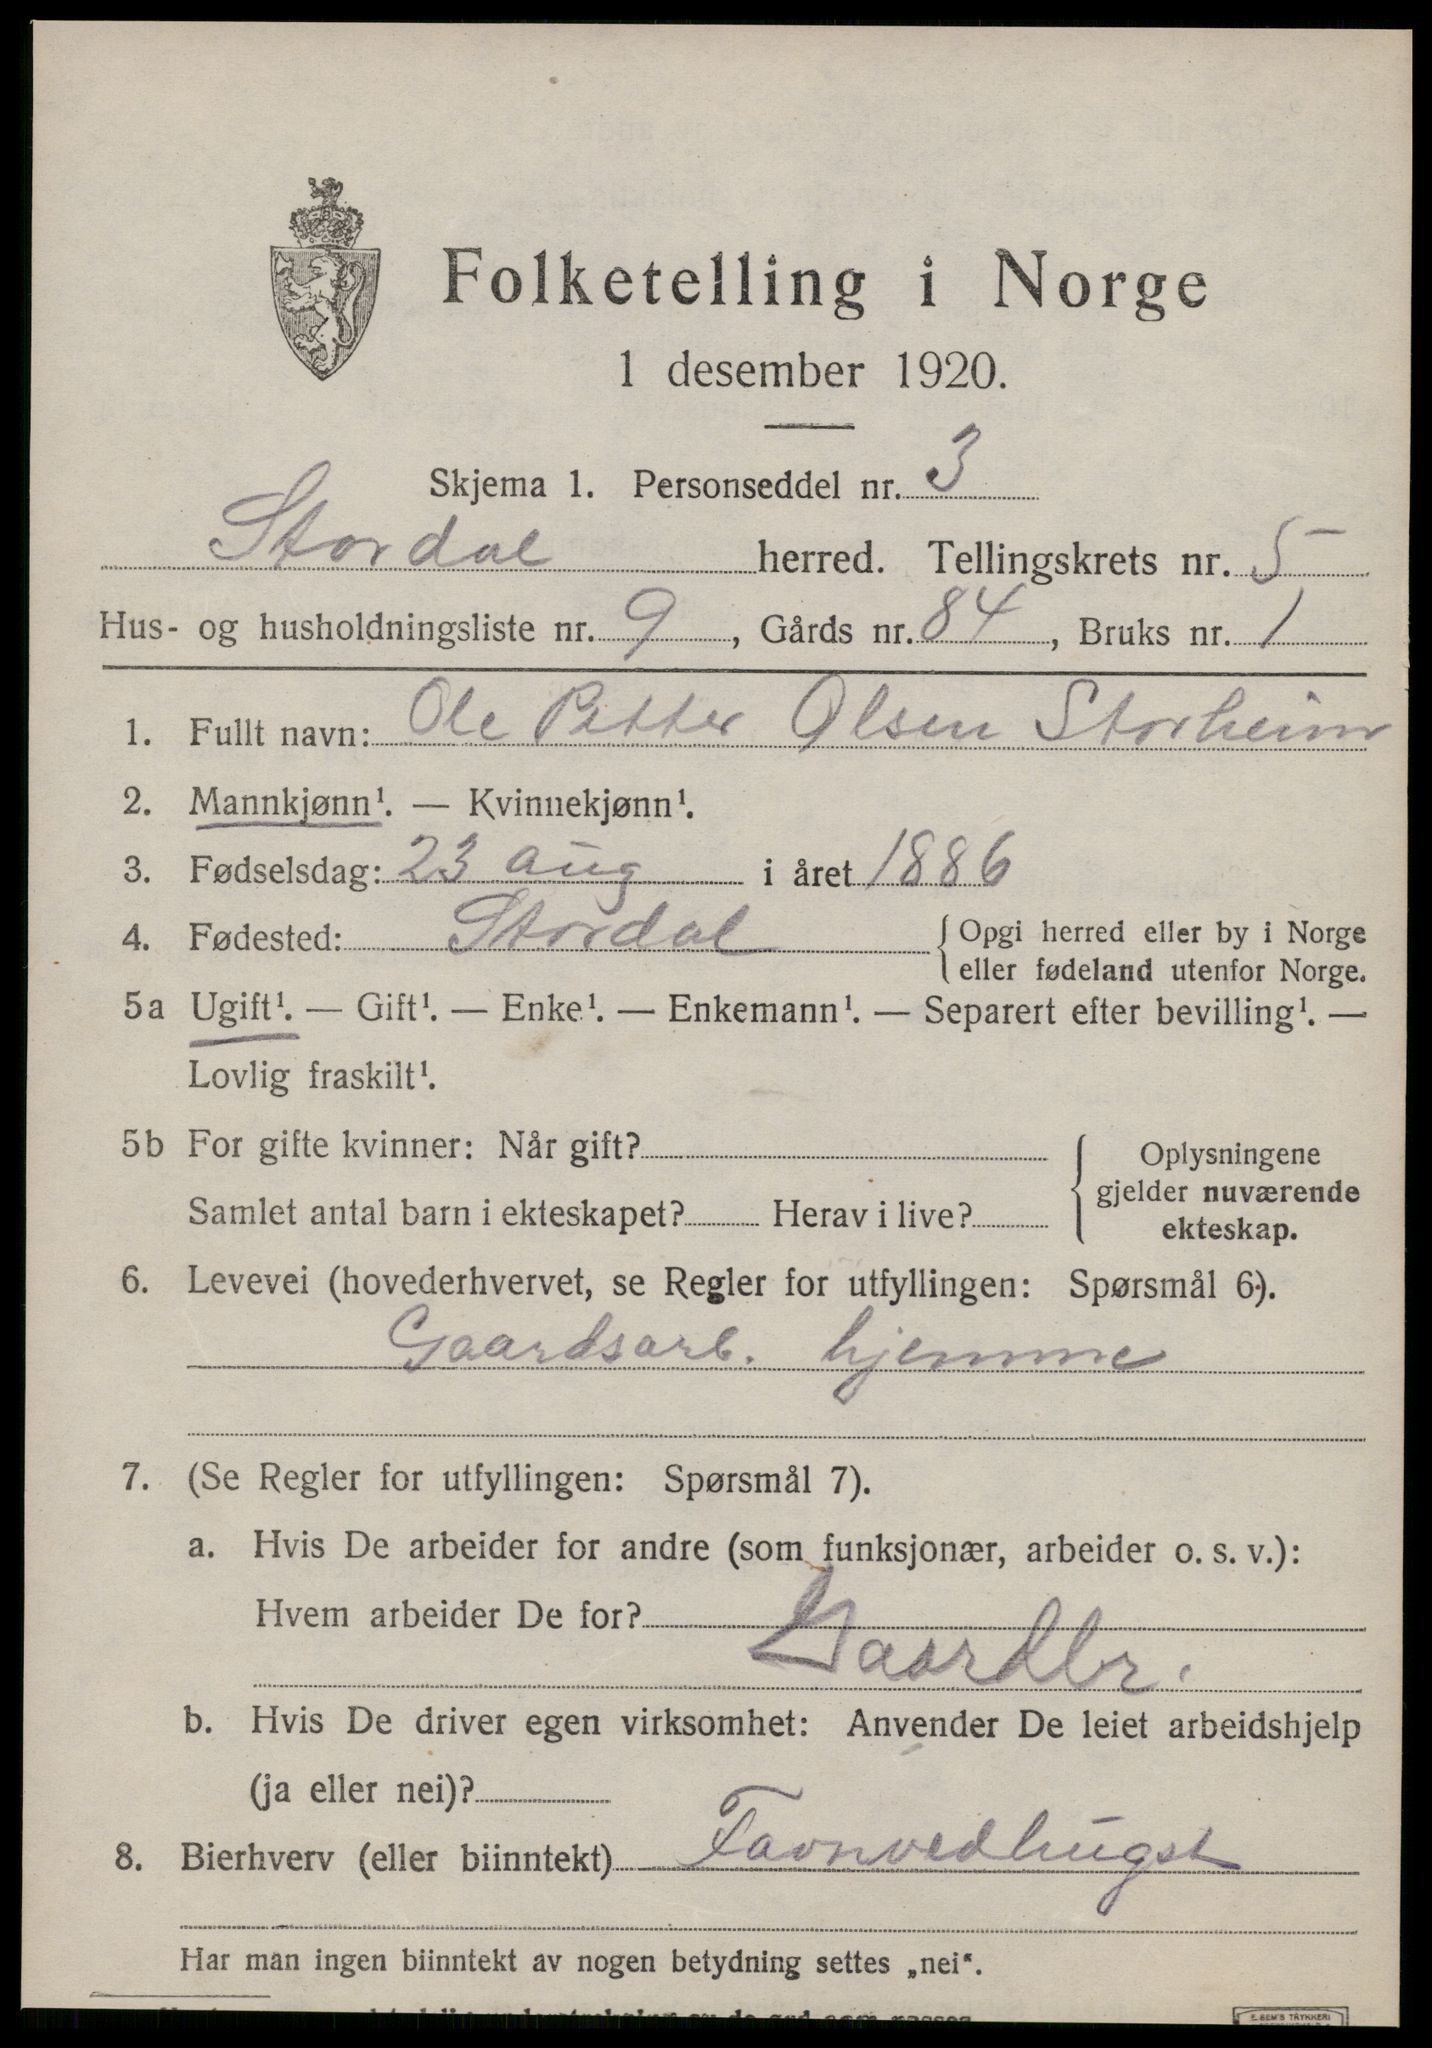 Folketelling i Norge
1 desember 1920.
Skjema 1. Personseddel nr. 3
Stordal herred. Tellingskrets nr. 5
Hus- og husholdningsliste nr. 9, Gårds nr. 84, Bruks nr. 1
1. Fullt navn: Ole Petter Olsen Storheim
2. Mannkjønn¹. — Kvinnekjønn¹.
3. Fødselsdag: 23 aug i året 1886
4. Fødested: Stordal { Opgi herred eller by i Norge
eller fødeland utenfor Norge.
5a Ugift¹. — Gift¹. — Enke¹. — Enkemann¹. — Separert efter bevilling¹. —
Lovlig fraskilt¹.
5b For gifte kvinner: Når gift? { Oplysningene
gjelder nuværende
Samlet antal barn i ekteskapet? Herav i live? ekteskap.
6. Levevei (hovederhvervet, se Regler for utfyllingen: Spørsmål 6).
Gaardsarb. hjemme
7. (Se Regler for utfyllingen: Spørsmål 7).
a. Hvis De arbeider for andre (som funksjonær, arbeider o. s. v.):
Hvem arbeider De for?
Gaardbr.
b. Hvis De driver egen virksomhet: Anvender De leiet arbeidshjelp
(ja eller nei)?
8. Bierhverv (eller biinntekt) Favnvedhugst
Har man ingen biinntekt av nogen betydning settes „nei“.